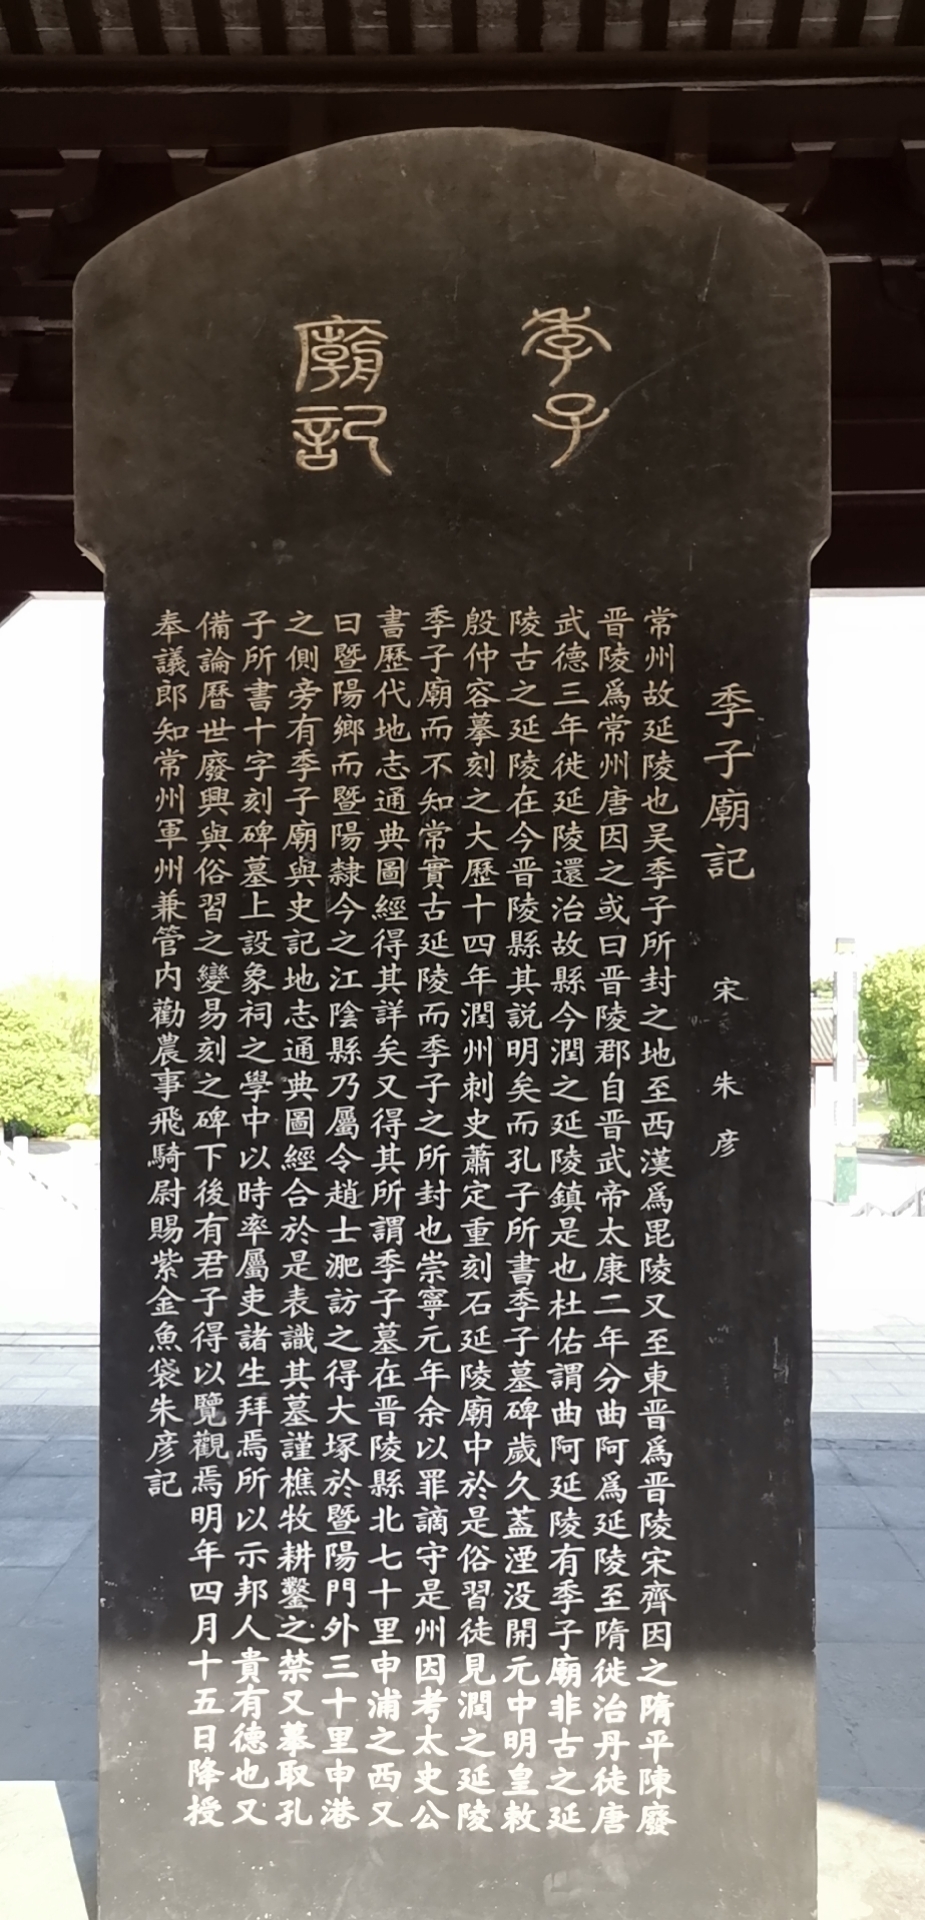 季子
廟記
季子廟記 宋 朱彦
常州故延陵也吴季子所封之地至西漢爲毘陵又至東晋爲晋陵宋齊因之隋平陳廢
晋陵爲常州唐因之或曰晋陵郡自晋武帝太康二年分曲阿爲延陵至隋徙治丹徒唐
武德三年徙延陵還治故縣今潤之延陵鎮是也杜佑謂曲阿延陵有季子廟非古之延
陵古之延陵在今晋陵縣其説明矣而孔子所書季子墓碑歲久蓋湮没開元中明皇敕
殷仲容摹刻之大歷十四年潤州刺史蕭定重刻石延陵廟中於是俗習徒見潤之延陵
季子廟而不知常實古延陵而季子之所封也崇寧元年余以罪謫守是州因考太史公
書歷代地志通典圖經得其詳矣又得其所謂季子墓在晋陵縣北七十里申浦之西又
曰暨陽鄉而暨陽隸今之江陰縣乃屬令趙士淝訪之得大塚於暨陽門外三十里申港
之側旁有季子廟與史記地志通典圖經合於是表識其墓謹樵牧耕鑿之禁又摹取孔
子所書十字刻碑墓上設象祠之學中以時率屬吏諸生拜焉所以示邦人貴有德也又
備論曆世廢興與俗習之變易刻之碑下後有君子得以覽觀焉明年四月十五日降授
奉議郎知常州軍州兼管内勸農事飛騎尉賜紫金魚袋朱彦記